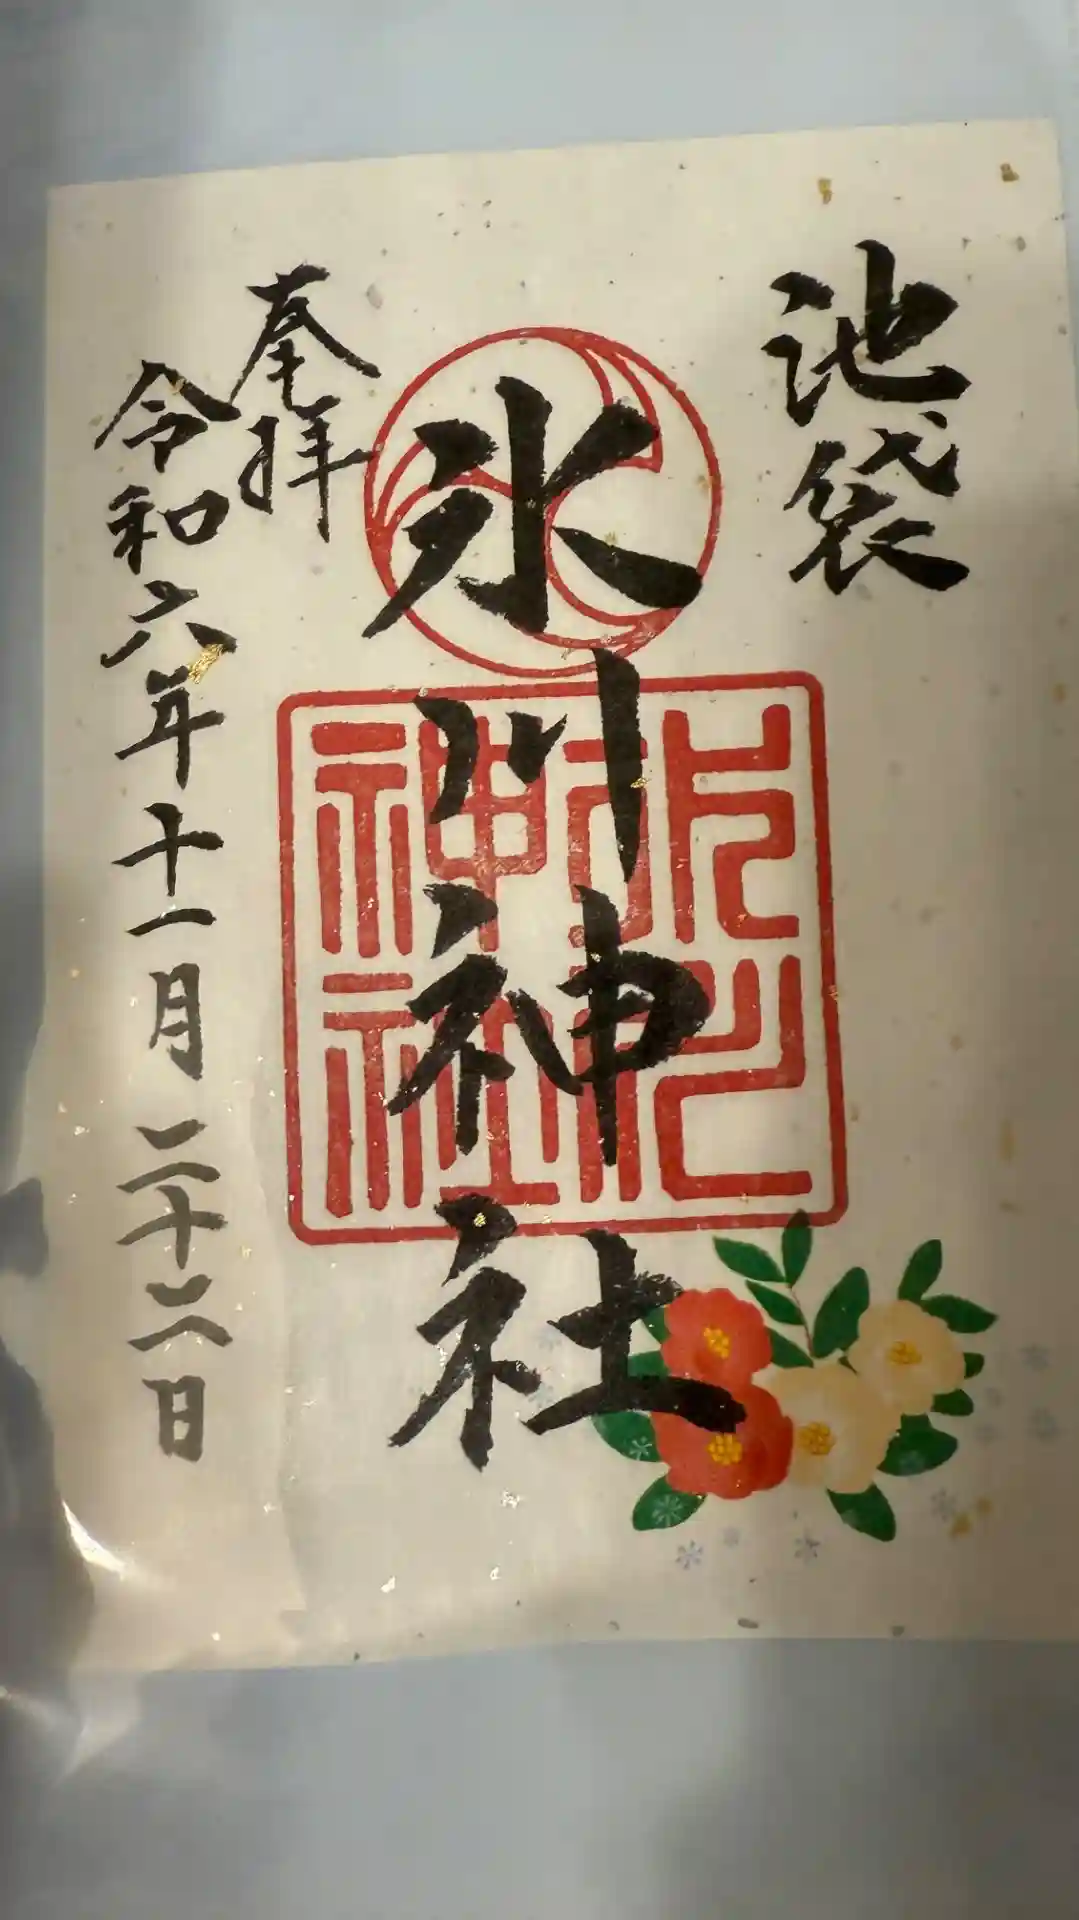 池袋
氷川神社
氷川
神社
奉拝
令和六年十一月二十二日